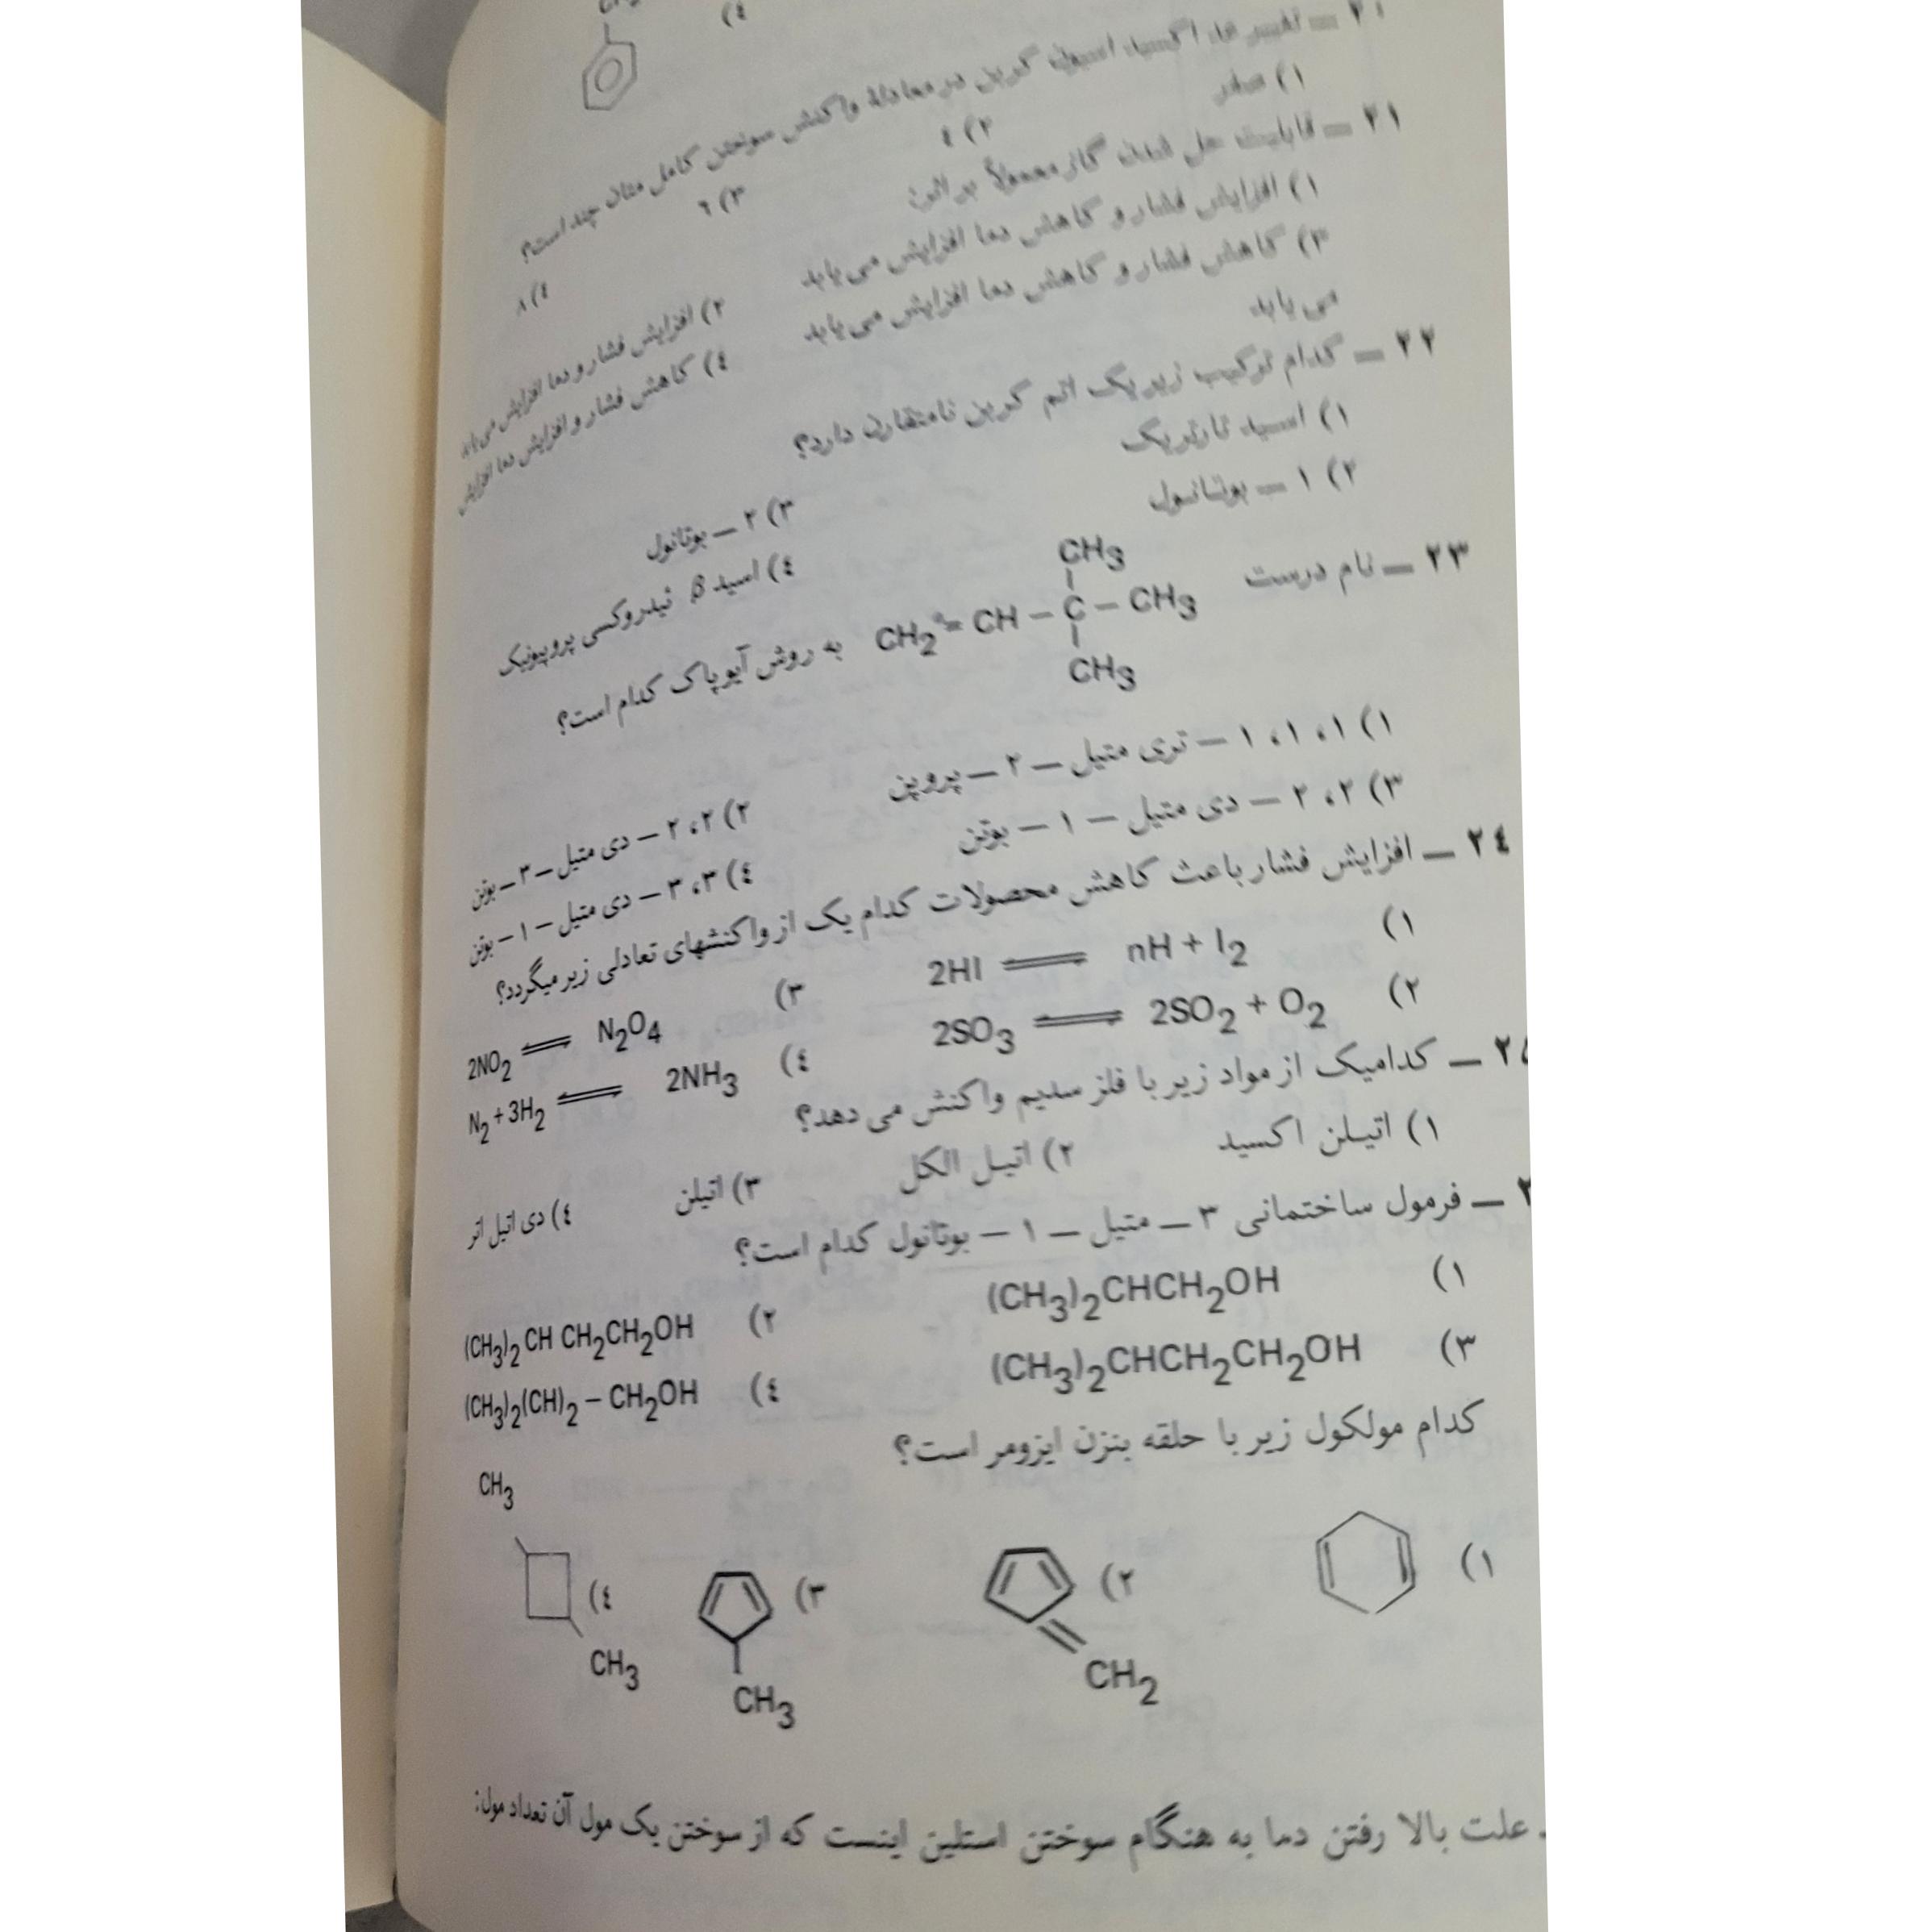 CH3
٤)
٢٠ ــ تغییر عدد اکسید اسیون کربن در معادلهٔ واکنش سوختن کامل متان چند است؟
١) صفر ٢) ٤ ٣) ٦ ٤) ٨
٢١ ــ قابلیت حل شدن گاز معمولاً بر اثر:
١) افزایش فشار و کاهش دما افزایش می یابد ٢) افزایش فشار و دما افزایش می یابد
٣) کاهش فشار و کاهش دما افزایش می یابد ٤) کاهش فشار و افزایش دما افزایش
می یابد
٢٢ ــ کدام ترکیب زیر یک اتم کربن نامتقارن دارد؟
١) اسید تارتریک ٣) ٢ ــ بوتانول
٢) ١ ــ بوتانول ٤) اسید β ئیدروکسی پروپیونیک
CH3
٢٣ ــ نام درست CH2 = CH – C – CH3 به روش آیوپاک کدام است؟
CH3
١) ١، ١، ١ ــ تری متیل ــ ٢ ــ پروپن ٢) ٢، ٢ ــ دی متیل ــ ٣ ــ بوتن
٣) ٢، ٢ ــ دی متیل ــ ١ ــ بوتن ٤) ٣، ٣ ــ دی متیل ــ ١ ــ بوتن
٢٤ ــ افزایش فشار باعث کاهش محصولات کدام یک از واکنشهای تعادلی زیر میگردد؟
١) 2HI ⇌ nH + I2 ٣) 2NO2 ⇌ N2O4
٢) 2SO3 ⇌ 2SO2 + O2 ٤) N2 + 3H2 ⇌ 2NH3
٢٥ ــ کدامیک از مواد زیر با فلز سدیم واکنش می دهد؟
١) اتیلن اکسید ٢) اتیل الکل ٣) اتیلن ٤) دی اتیل اتر
ــ فرمول ساختمانی ٣ ــ متیل ــ ١ ــ بوتانول کدام است؟
١) (CH3)2CHCH2OH ٢) (CH3)2 CH CH2CH2OH
٣) (CH3)2CHCH2CH2OH ٤) (CH3)2(CH)2 – CH2OH
کدام مولکول زیر با حلقه بنزن ایزومر است؟
CH3
١) ٢) ٣) ٤)
CH2 CH3 CH3
علت بالا رفتن دما به هنگام سوختن استلین اینست که از سوختن یک مول آن تعداد مول: